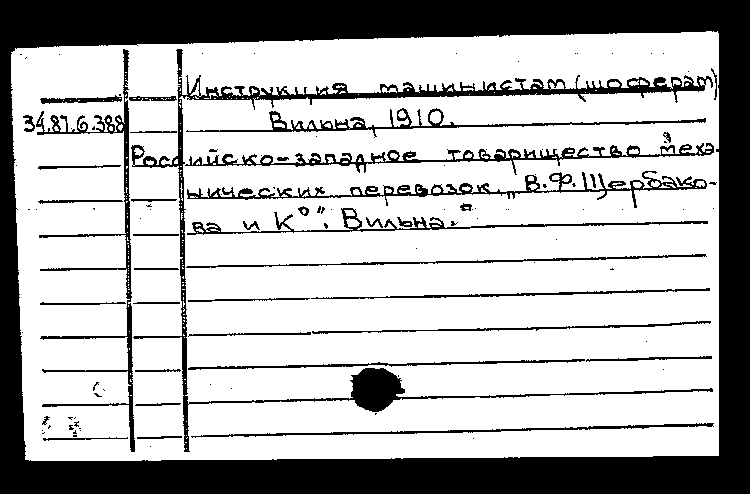 Инструкция машинистам (шоферам)
34.87.6.388
Вильна, 1910.
Российско-западное товарищество меха-
нических перевозок „В.Ф.Щербако-
ва и К°". Вильна."